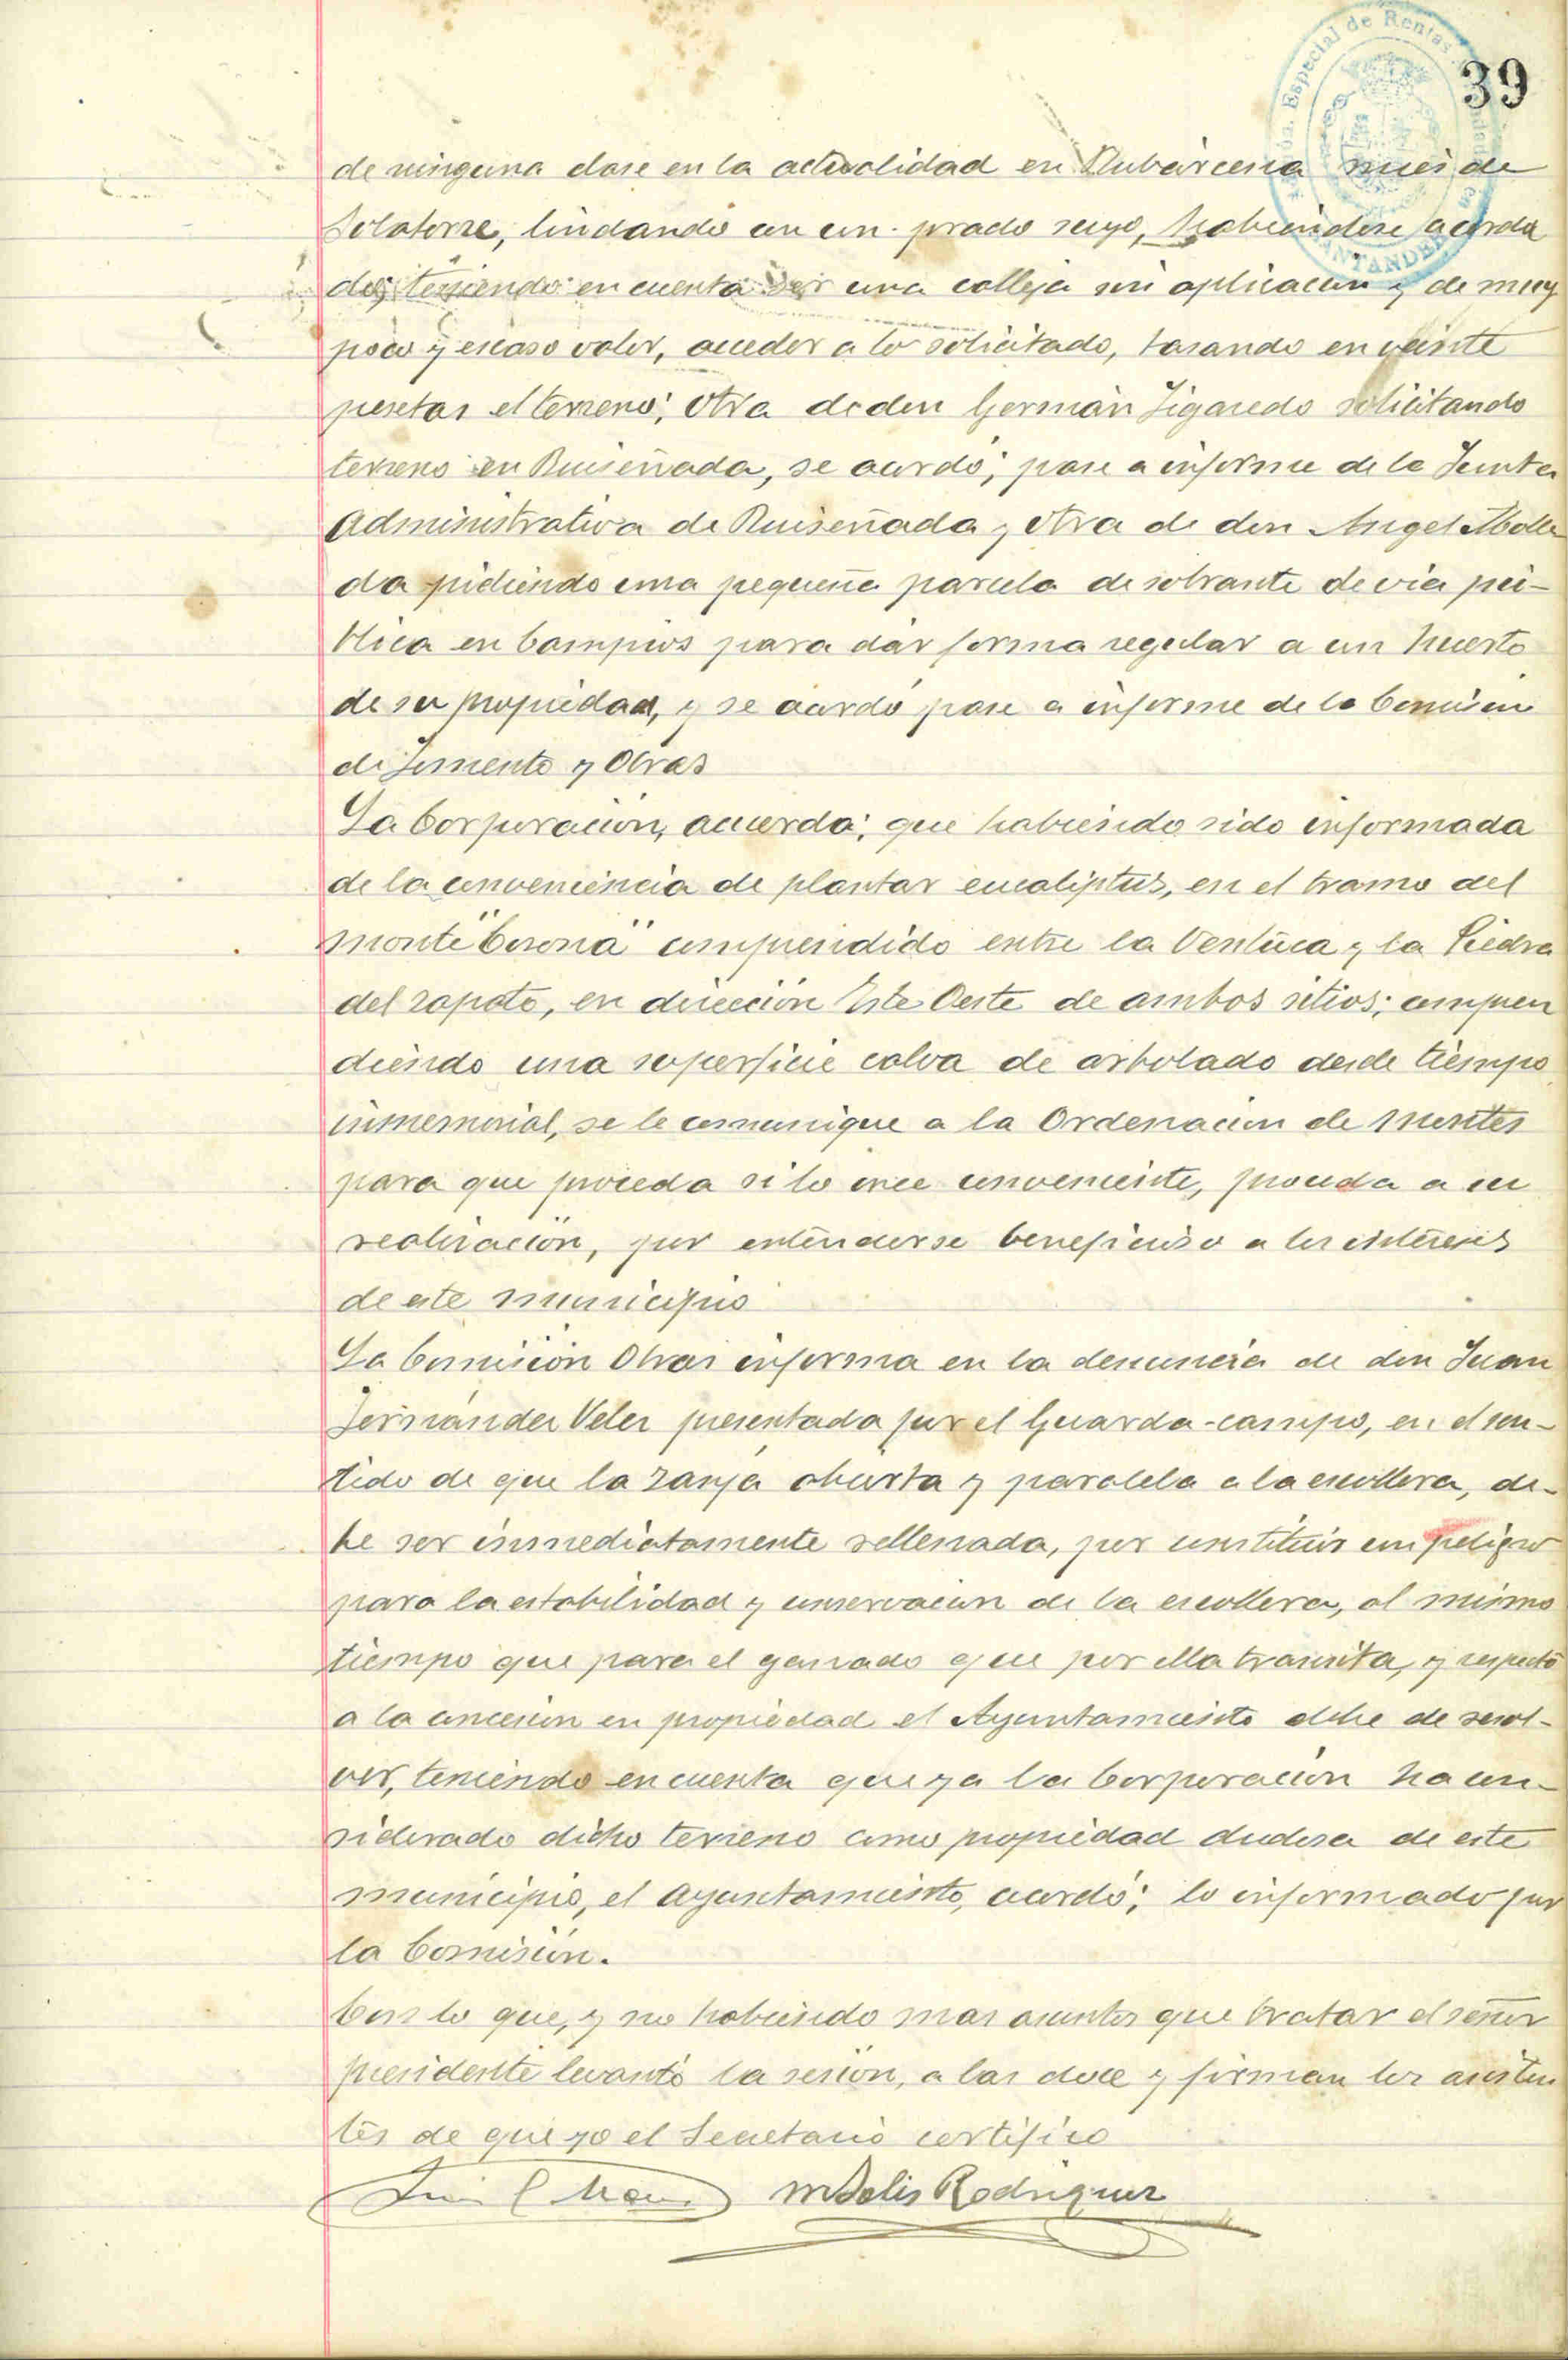 39
de ninguna clase en la actualidad en Rubárcena mies de
Solatorre, lindando con un prado suyo, habiendose acorda
do; teniendo en cuenta ser una calleja sin aplicacion y de muy
poco y escaso valor, acceder a lo solicitado, tasando en veinte
pesetas el terreno; otra de don Germán Figaredo solicitando
terreno en Ruiseñada, se acordó; pase a informe de la Junta
Administrativa de Ruiseñada y otra de don Angel Molle
da pidiendo una pequeña parcela de sobrante de via pú-
blica en Campios para dar forma regular a un huerto
de su propiedad, y se acordó pase a informe de la Comision
de Fomento y Obras
La Corporación, acuerda; que habiendo sido informada
de la conveniencia de plantar eucaliptus, en el tramo del
monte "Corona" comprendido entre la Ventuca y la Piedra
del zapato, en dirección Este Oeste de ambos sitios; compren
diendo una superficie calva de arbolado desde tiempo
inmemorial, se le comunique a la Ordenacion de Montes
para que proceda si lo cree conveniente, proceda a su
realización, por entenderse beneficioso a los intereses
de este municipio
La Comisión Obras informa en la denuncia de don Juan
Fernández Velez presentada por el Guarda-campo, en el sen-
tido de que la zanja abierta y paralela a la escollera, de-
be ser inmediatamente rellenada, por constituir un peligro
para la estabilidad y conservacion de la escollera, al mismo
tiempo que para el ganado que por ella transita, y respecto
a la concesion en propiedad el Ayuntamiento debe de resol-
ver, teniendo en cuenta que ya la Corporación ha con-
siderado dicho terreno como propiedad dudosa de este
municipio, el Ayuntamiento, acordó; lo informado por
la Comisión.
Con lo que, y no habiendo mas asuntos que tratar el señor
presidente levantó la sesión, a las doce y firman los asisten
tes de que yo el Secretario certifico
M Solis Rodriguez